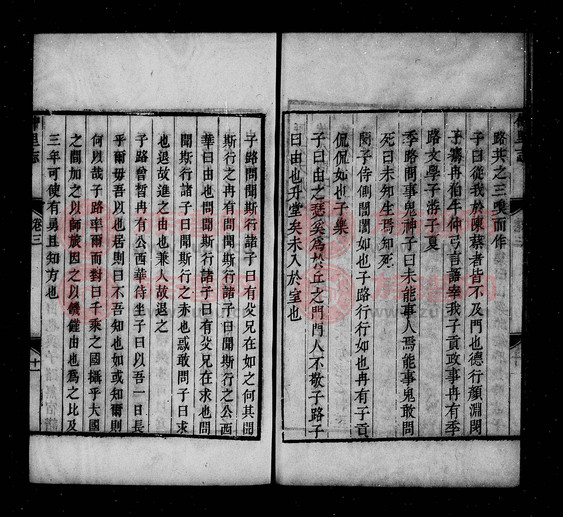 路共之三嗅而作
子曰從我於陳蔡者皆不及門也德行顏淵閔
子騫冉伯牛仲弓言語宰我子貢政事冉有季
路文學子游子夏
季路問事鬼神子曰未能事人焉能事鬼敢問
死曰未知生焉知死
閔子侍側誾誾如也子路行行如也冉有子貢
侃侃如也子樂
子曰由之瑟奚爲於丘之門門人不敬子路子
曰由也升堂矣未入於室也
子路問聞斯行諸子曰有父兄在如之何其聞
斯行之冉有問聞斯行諸子曰聞斯行之公西
華曰由也問聞斯行諸子曰有父兄在求也問
聞斯行諸子曰聞斯行之赤也惑敢問子曰求
也退故進之由也兼人故退之
子路曾晳冉有公西華侍坐子曰以吾一日長
乎爾毋吾以也居則曰不吾知也如或知爾則
何以哉子路率爾而對曰千乘之國攝乎大國
之間加之以師旅因之以饑饉由也爲之比及
三年可使有勇且知方也
卷三
十